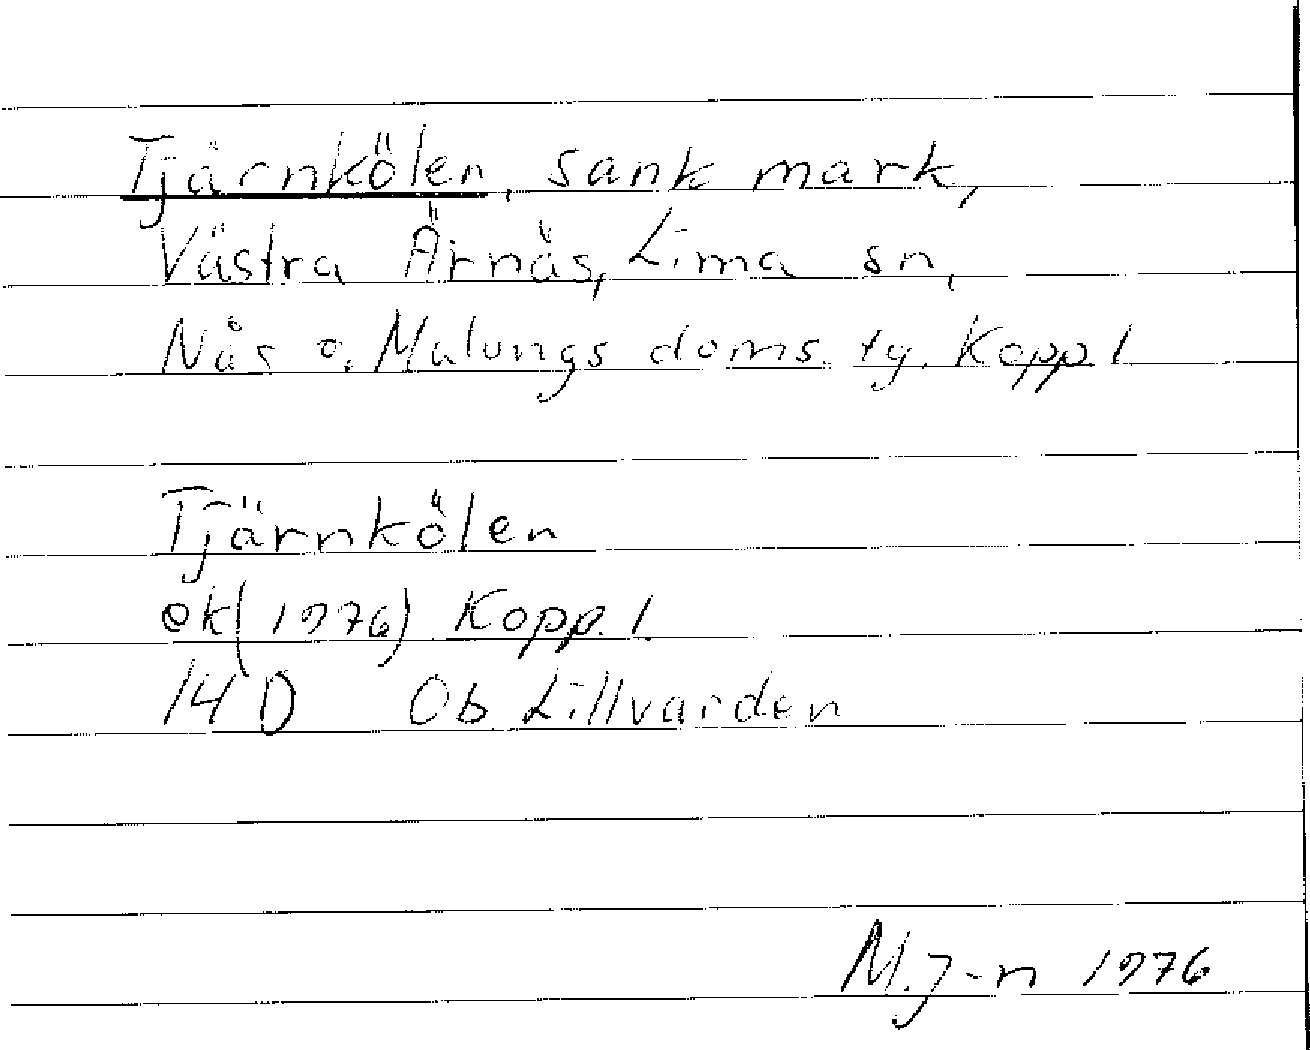 Tjärnkölen, sank mark,
Västra Ärnäs, Lima sn,
Nås o. Malungs doms. tg. Kopp l
Tjärnkölen
ek (1976) Kopp. l.
14 D Ob Lillvarden
M. J-n 1976